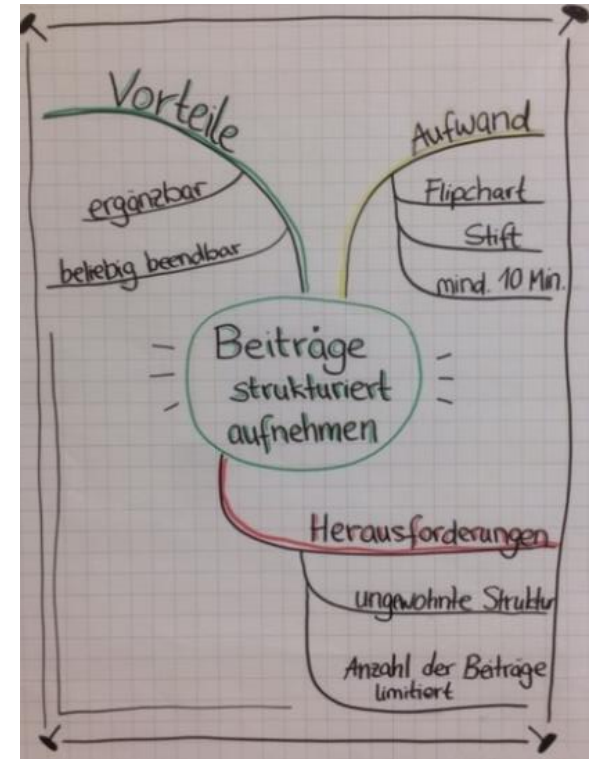 Vorteile
ergänzbar
beliebig beendbar
Aufwand
Flipchart
Stift
mind. 10 Min.
Beiträge
strukturiert
aufnehmen
Herausforderungen
ungewohnte Struktur
Anzahl der Beiträge
limitiert